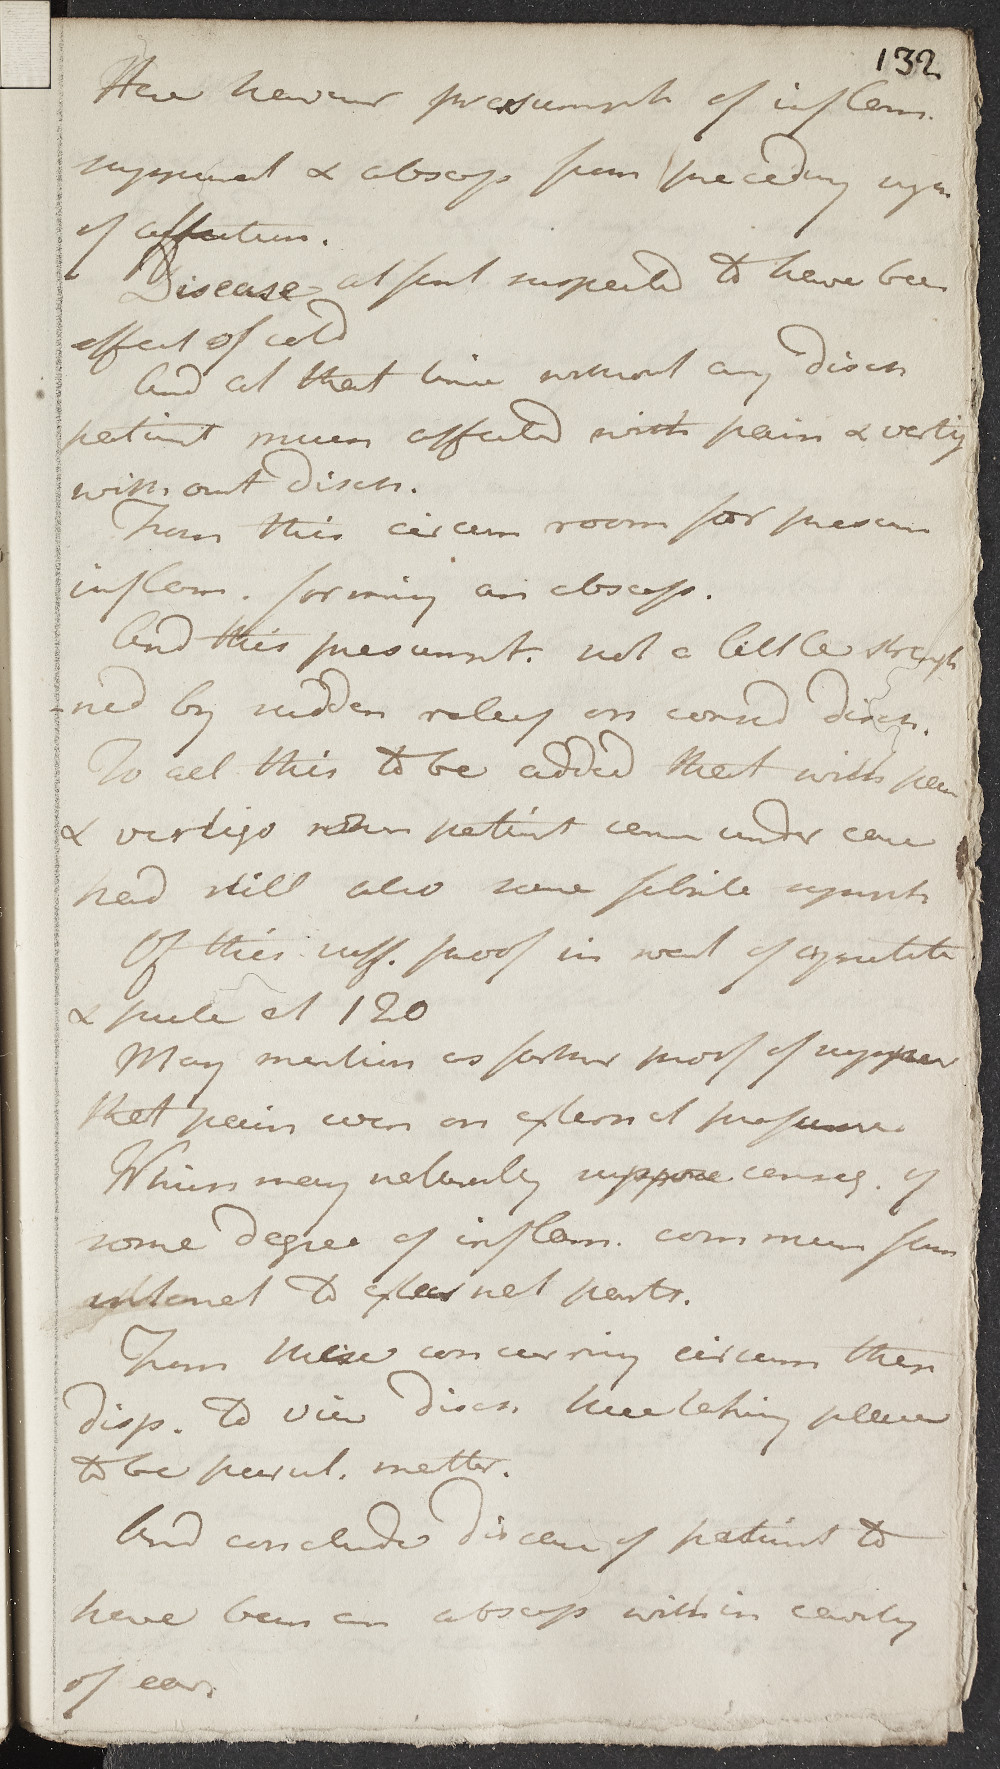 132
Have however presumpt of inflam.
suppurat & abscess from preceding sym
of affection.
Disease at first suspected to have been
effect of cold
And at that time without any disch
patient much affected with pain & vertig
without disch.
From this circum room for presum
inflam. forming an abscess.
And this presumpt. not a little strength
-ned by sudden relief on consid disch.
To all this to be added that with pain
& vertigo when patient came under care
had still also some febrile sympt
Of this suff. proof in want of appetite
& pulse at 120
May mention as farther proof of suppur
that pain even on external pressure
Which may naturally suppose conseq. of
some degree of inflam. commun from
internal to external parts.
From these concurring circum then
disp. to view disch here taking place
to be purul. matter.
And conclude disease of patient to
have been an abscess within cavity
of ear.